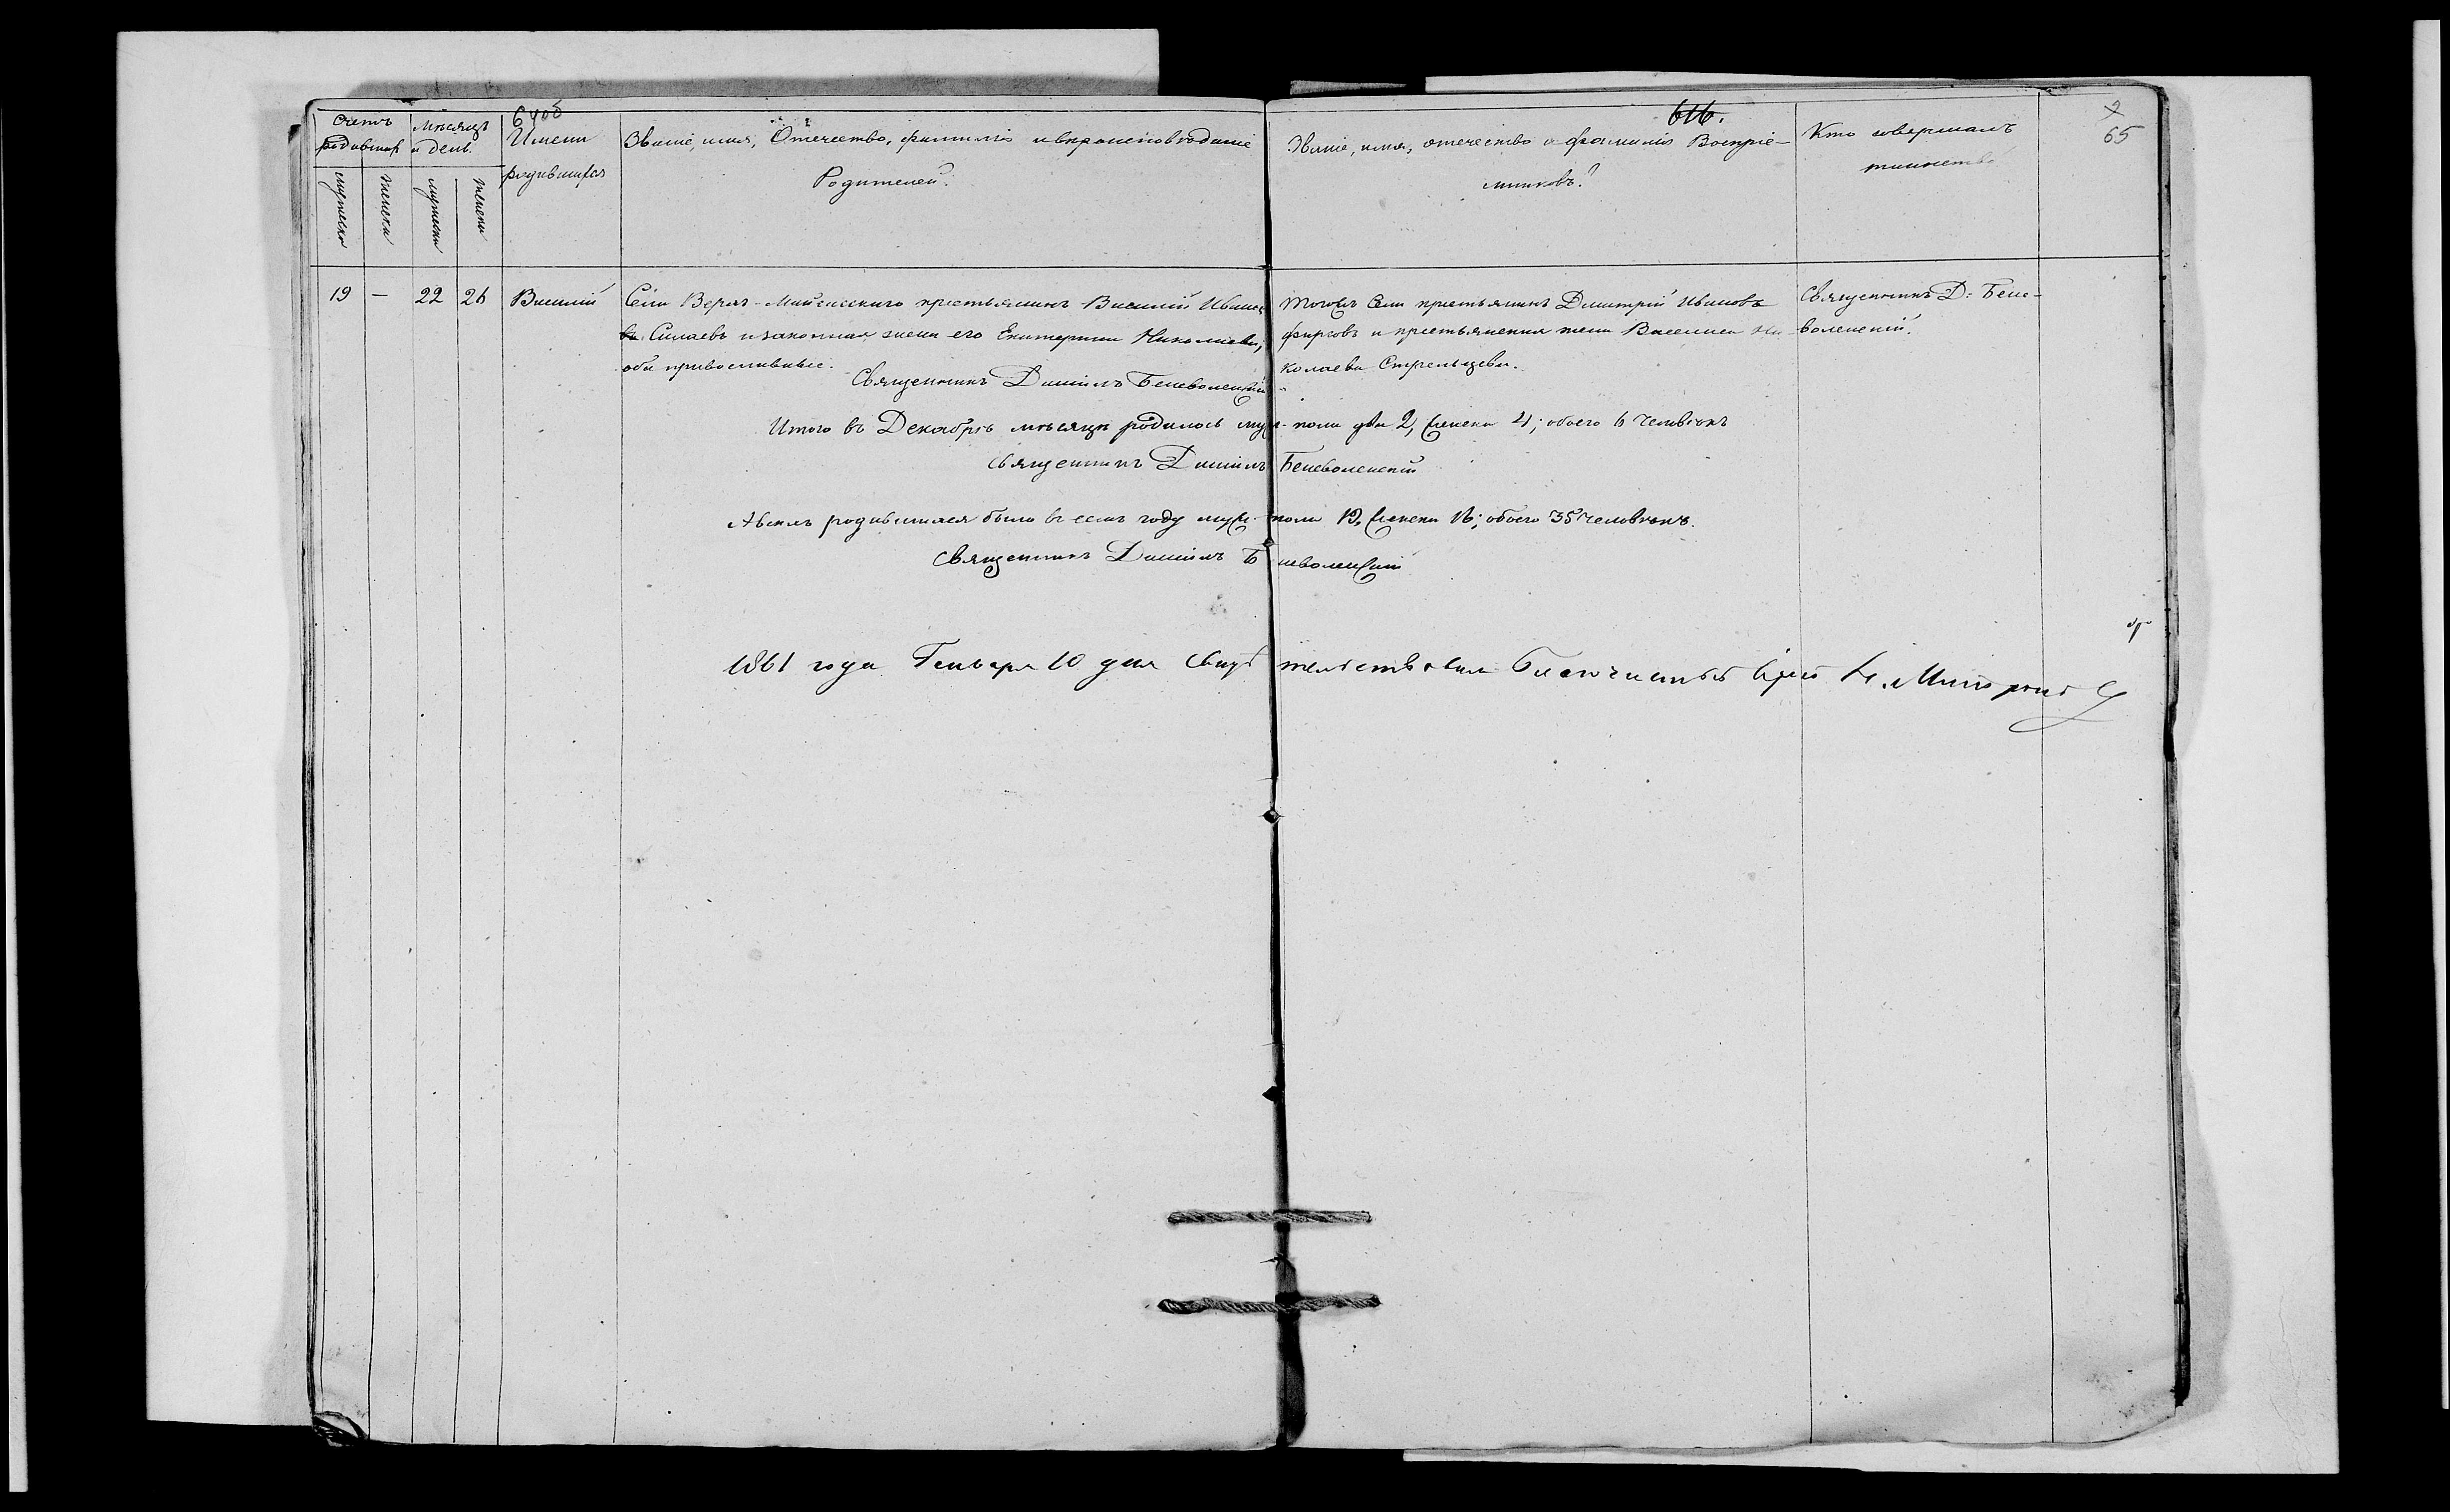 64об
616.
65
Счетъ родившихся
Мѣсяцъ и день.
Имена родившихся
Званіе, имя, Отечество, фамилія и вѣроисповѣданіе Родителей.
Званіе, имя, отечество и фамилія Воспріемниковъ.
Кто совершалъ таинство
мужеска
женска
мужески
женски
19 — 22 26 Василій
Села Верхъ-Майженскаго крестьянинъ Василій Ивановъ
Силаевъ и законная жена его Екатерина Николаева,
оба православные.
Священникъ Даніилъ Беневоленскій
Тогожъ Села крестьянинъ Димитрій Ивановъ
Фирсовъ и крестьянская жена Васса Ни-
колаева Стрельцева.
Священникъ Д: Бене-
воленскій.
Итого въ Декабрѣ мѣсяцѣ родилось муж. пола два 2, женска 4; обоего 6 человѣкъ
Священникъ Даніилъ Беневоленскій
А всѣхъ родившихся было въ семъ году муж. пола 19, женска 16; обоего 35 человѣкъ.
Священникъ Даніилъ Беневоленскій
1861 года Генваря 10 дня Свидѣтельствовалъ Благочинный Іерей